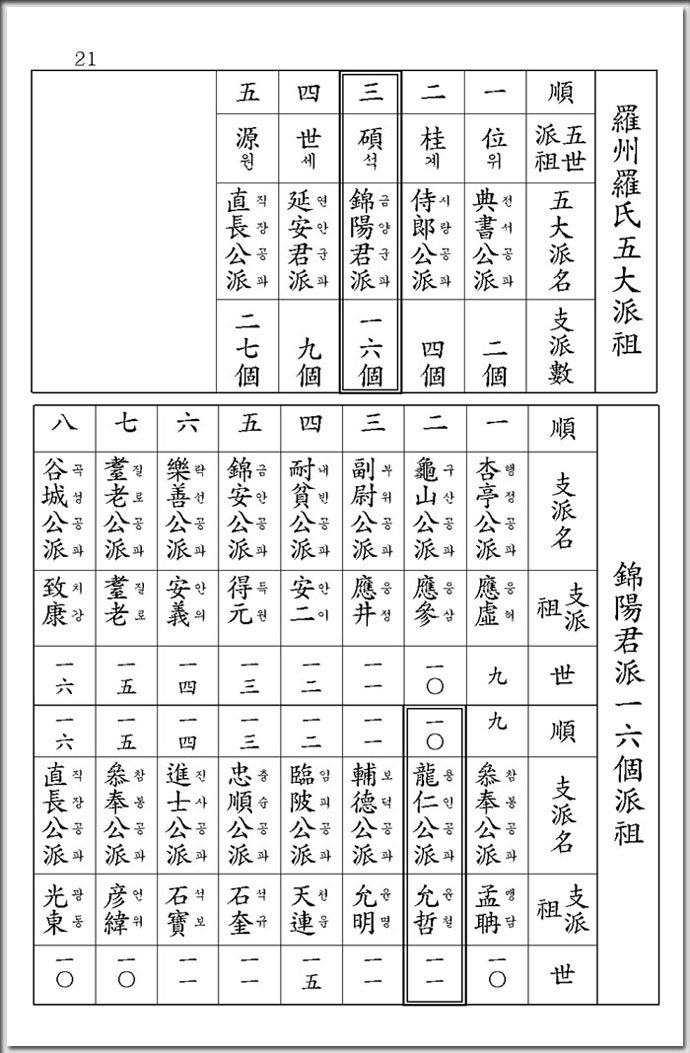 21
羅州羅氏五大派祖
順
五世派祖
五大派名
支派數
一
位 위
典書公派 전서공파
二個
二
桂 계
侍郞公派 시랑공파
四個
三
碩 석
錦陽君派 금양군파
一六個
四
世 세
延安君派 연안군파
九個
五
源 원
直長公派 직장공파
二七個
錦陽君派一六個派祖
順
支派名
支派祖
世
順
支派名
支派祖
世
一
杏亭公派 행정공파
應虛 응허
九
九
叅奉公派 참봉공파
孟聃 맹담
一〇
二
龜山公派 구산공파
應參 응삼
一〇
一〇
龍仁公派 용인공파
允哲 윤철
一一
三
副尉公派 부위공파
應井 응정
一一
一一
輔德公派 보덕공파
允明 윤명
一一
四
耐貧公派 내빈공파
安二 안이
一二
一二
臨陂公派 임피공파
天連 천운
一五
五
錦安公派 금안공파
得元 득원
一三
一三
忠順公派 충순공파
石奎 석규
一一
六
樂善公派 락선공파
安義 안의
一四
一四
進士公派 진사공파
石寶 석보
一一
七
耋老公派 질로공파
耋老 질로
一五
一五
叅奉公派 참봉공파
彦緯 언위
一〇
八
谷城公派 곡성공파
致康 치강
一六
一六
直長公派 직장공파
光東 광동
一〇